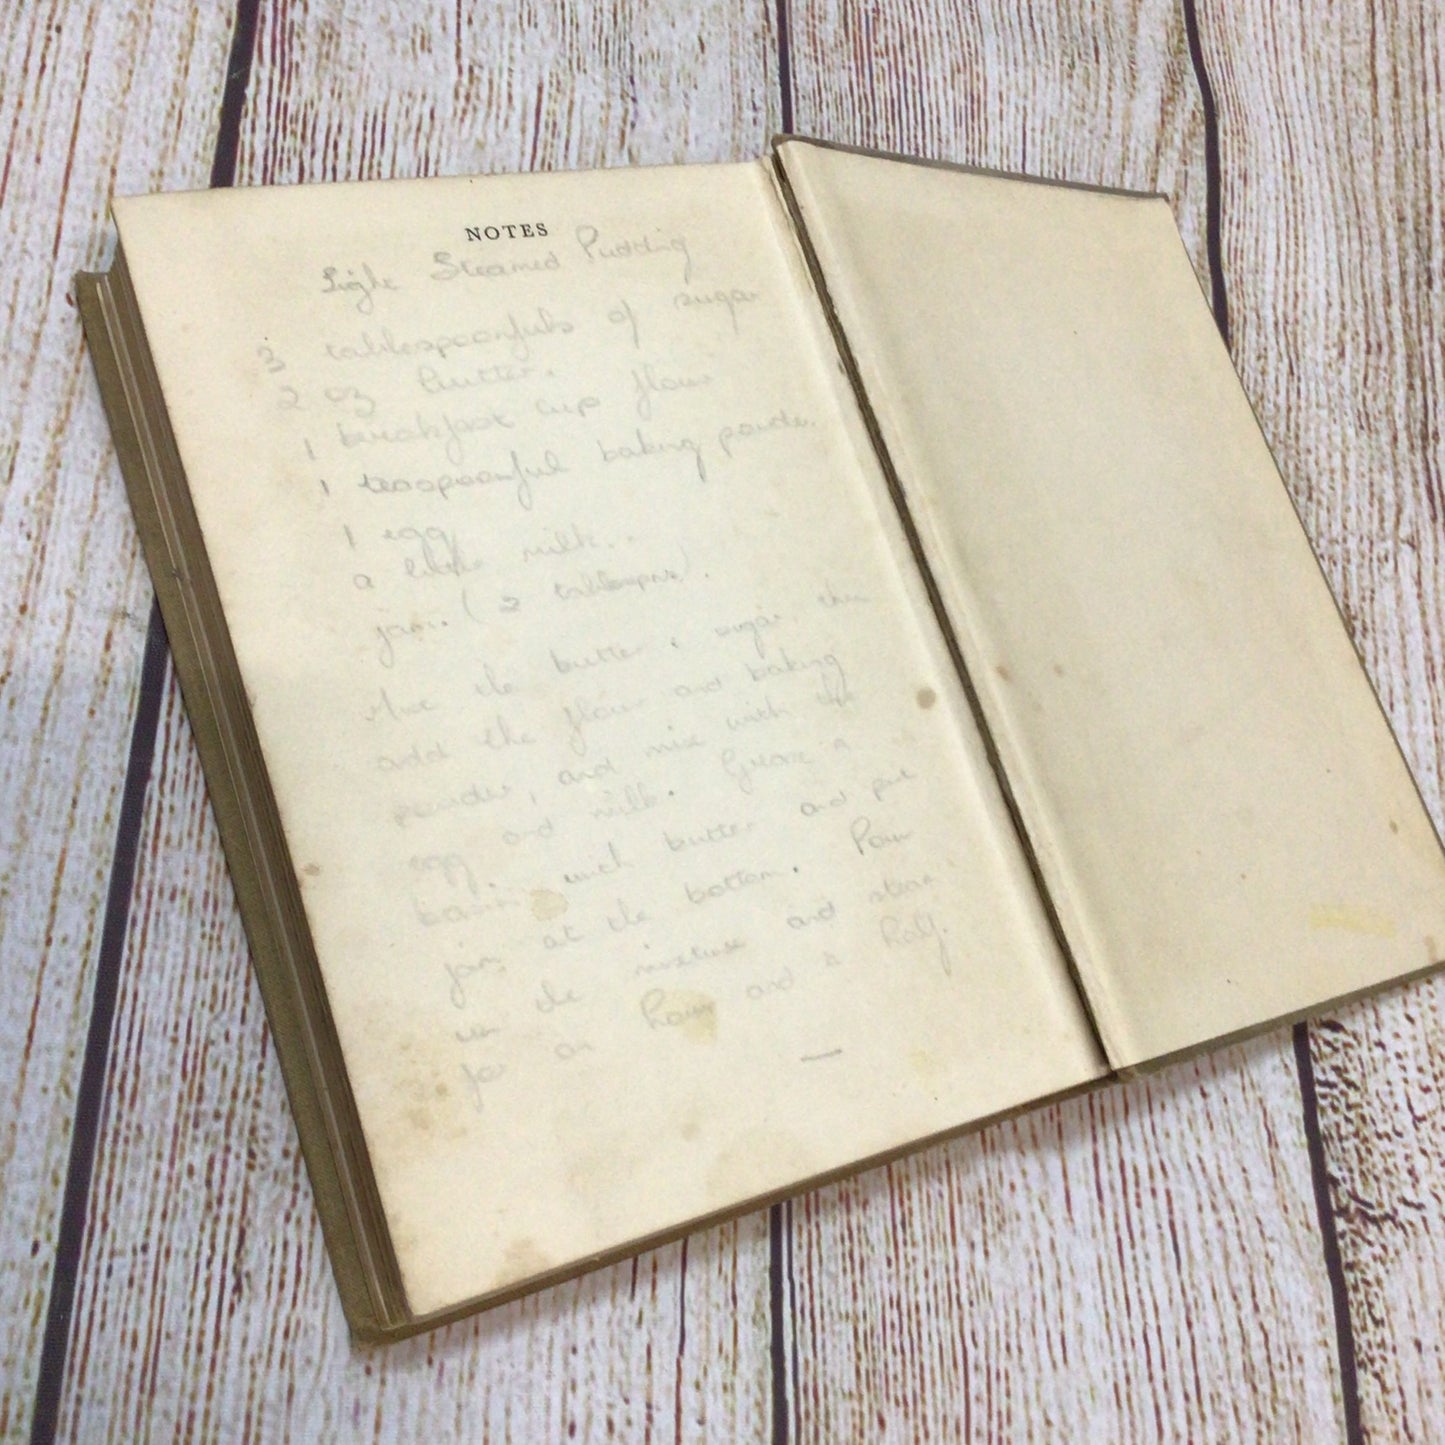 NOTES
Light Steamed Pudding
3 tablespoonfuls of sugar
2 oz butter.
1 breakfast cup flour
1 teaspoonful baking powder.
1 egg
a little milk.
jam. (2 tablespns).
Mix the butter & sugar then
add the flour and baking
powder, and mix with the
egg and milk. Grease a
basin with butter and put
jam at the bottom. Pour
in the mixture and steam
for an hour and a half.